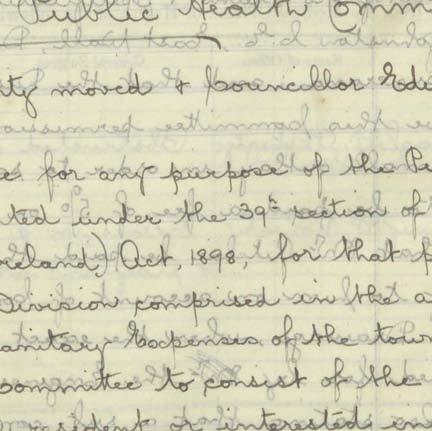 Public Health Comm
ity moved & Councillor Edi
e for any purpose of the Pu
ted under the 39th section of
reland) Act, 1898, for that p
Division comprised in the a
anitary Expenses of the town
committee to consist of the
resident or interested in